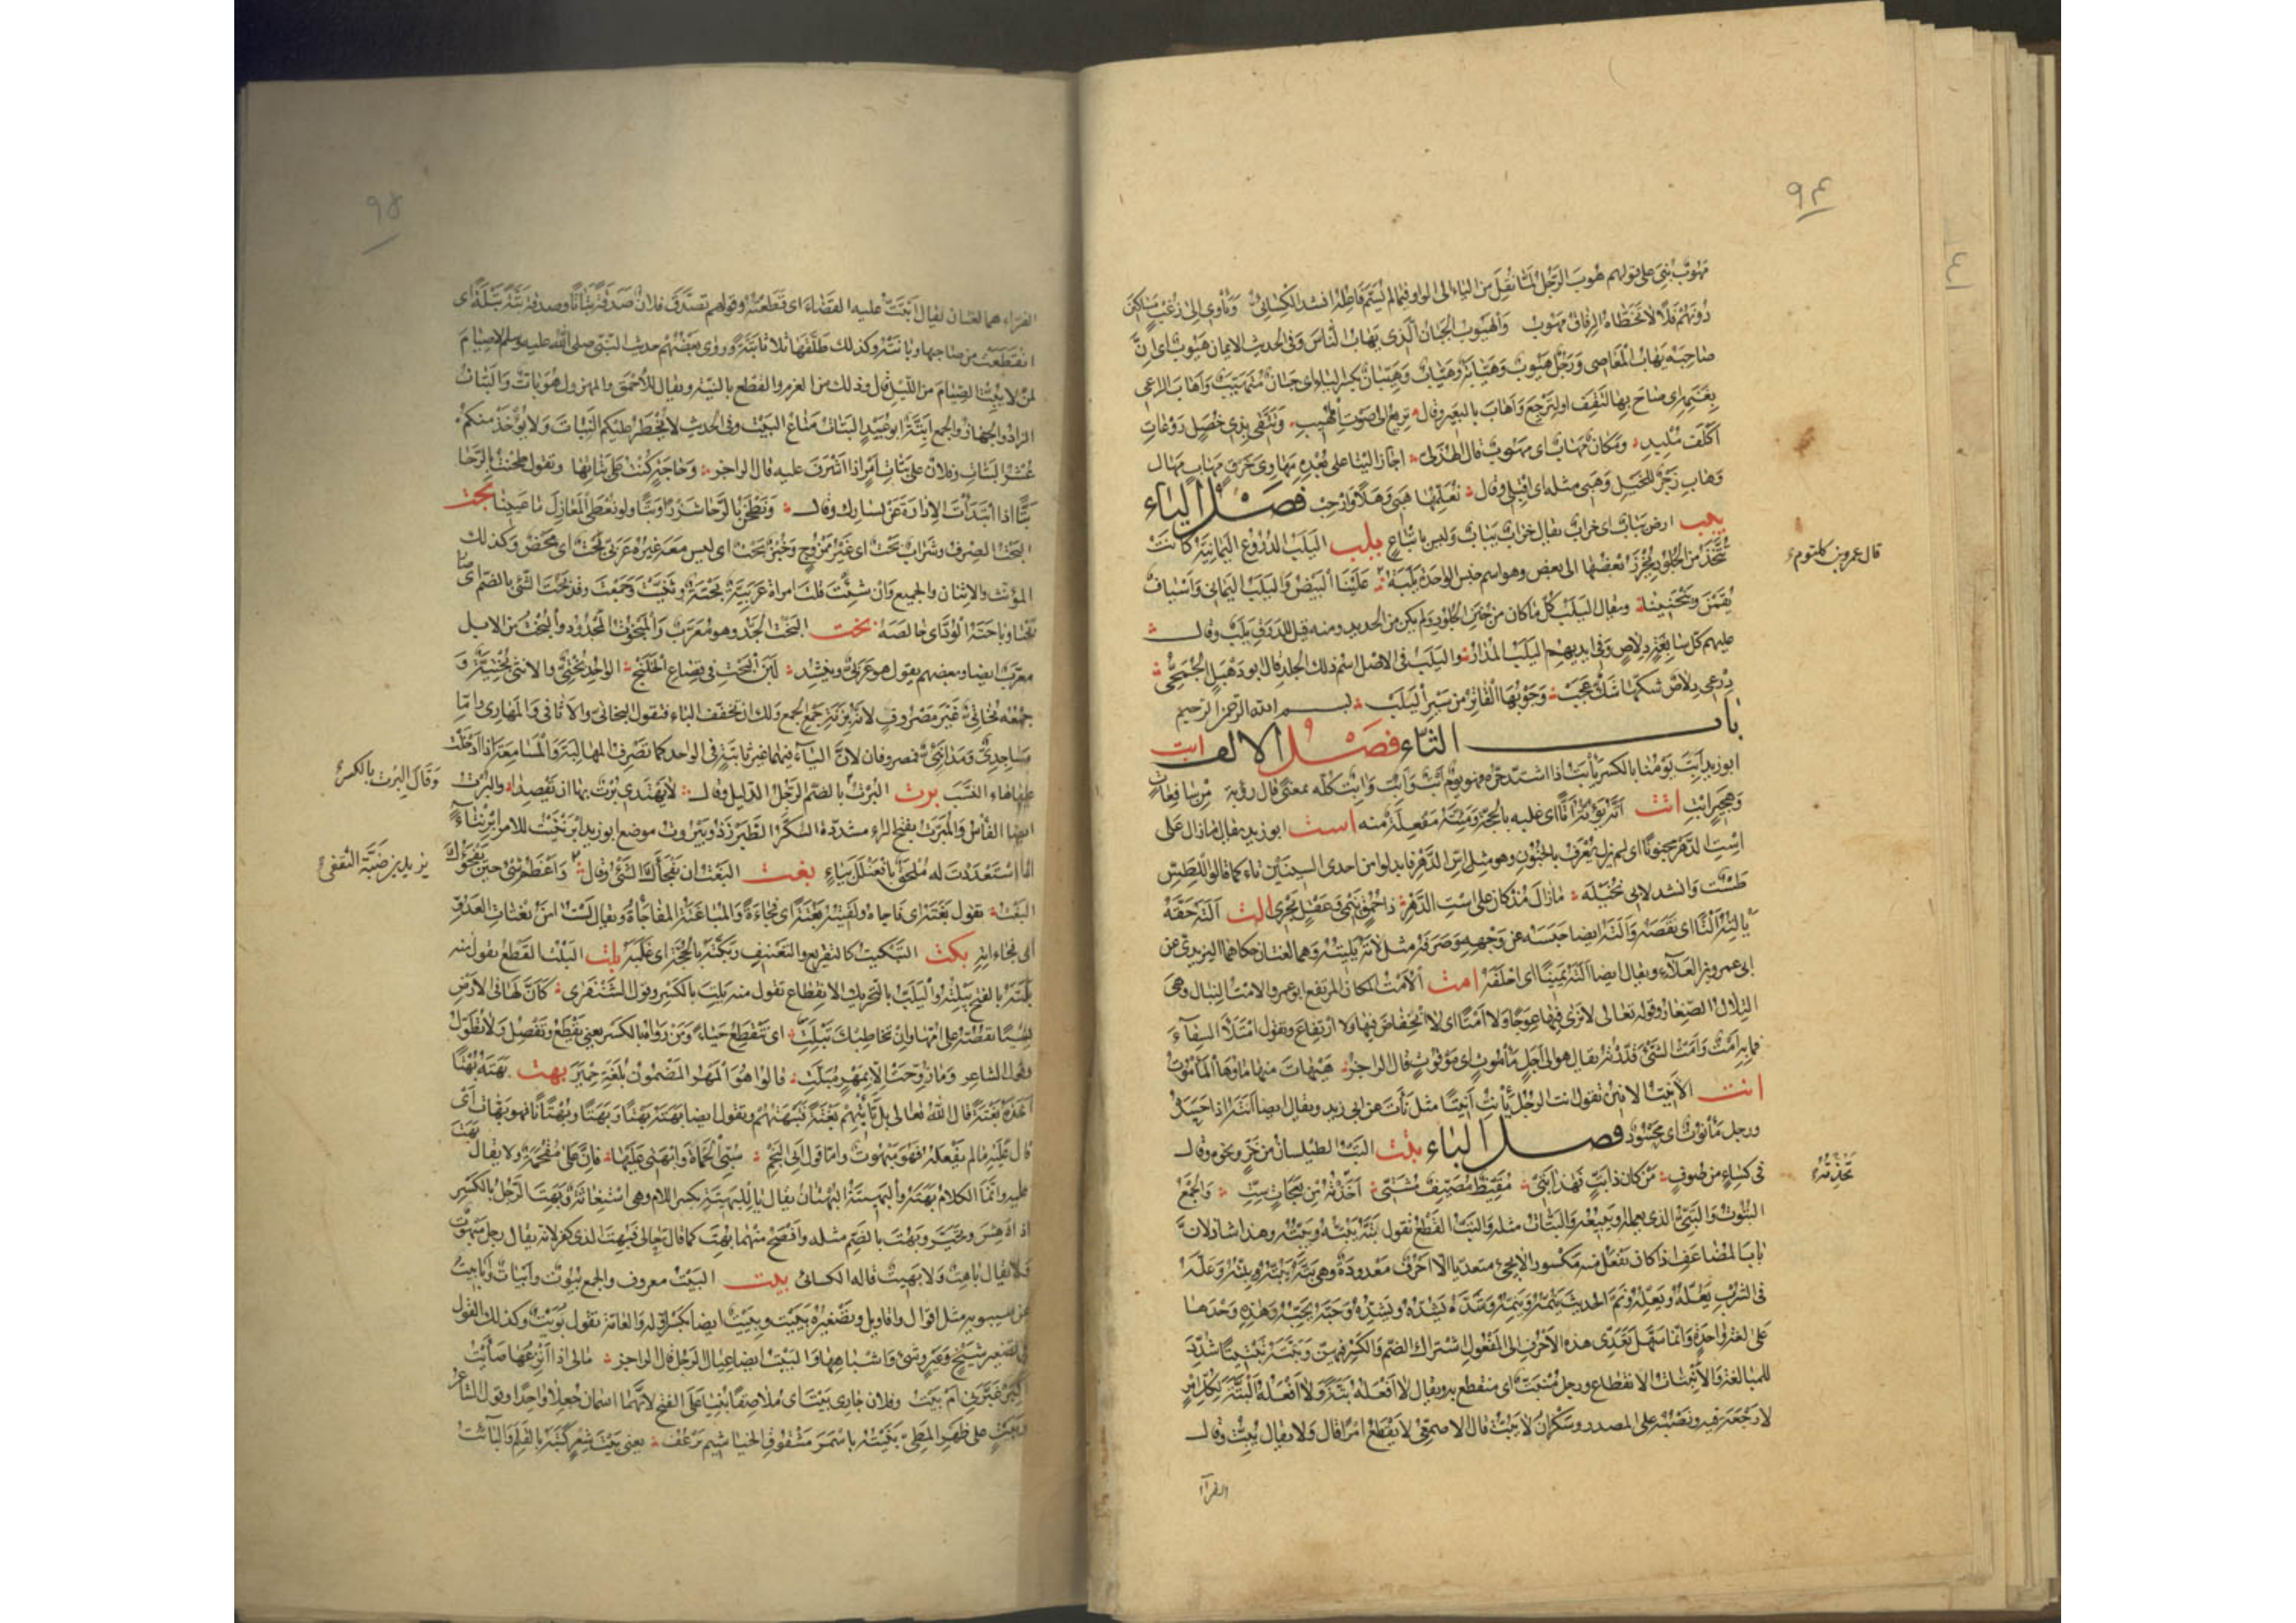 ٩٤
مَهُوبٌ بُنِيَ على قولهم هُوبَ الرَّجُلُ لمّا نُقِلَ من الياء الى الواو فيما لم يُسَمَّ فاعله انشد الكسائي وَيَأوي الى زُغْبٍ مَسَاكِينَ
دُونَهُم فَلًا لا تَخَطّاهُ الرِّفَاقُ مَهُوبُ وَالهَيُوبُ الجَبَان الّذي يَهَابُ النَّاسَ وَفى الحديث الايمان هَيُوبٌ اى انّ
صَاحِبَه يَهَابُ المَعَاصِي وَرَجُل هَيُوبٌ وَهَيَّابَةٌ وَهَيَّابٌ وَهَيَّبَانٌ بكسر الياء اى جَبَانٌ مُتَهَيِّبٌ وَاَهَابَ الراعي
بِغَنَمِهِ اى صَاحَ بها لتَقِفَ او لِتَرْجِعَ وَاَهَابَ بالبعير وقال تَرِيعُ الى صَوْتِ المُهِيبِ وَتَتَّقى بِذِى خُصَلٍ رَوْعَاتِ
اَكْلَفَ مُلْبِدِ وَمَكَانٌ مَهَابٌ اى مَهُوبٌ قال الهذلى اجَازَ الينا على بُعْدِهِ مَهَاوِىَ خَرْقٍ مَهَابٍ مَهَالِ
وَهَابِ زَجْرٌ للخيل وَهَبِى مثله اى اقبلى وقال نُعَلِّمُهَا هَبِى وَهَلًا وَاَرْحِبْ فصل الياء
يبب ارض يَبَابٌ اى خراب يقال خراب يَبَابٌ وليس باتباعٍ يلب اليَلَبُ الدُرُوعُ اليَمَانِيَةُ كانت
تُتَّخَذُ من الجُلُودِ يُخْرَزُ بَعْضُهَا الى بعض وهو اسم جنس الواحدة يَلَبَةٌ عَلَيْنَا البَيْضُ وَاليَلَبُ اليَمَانِى وَاَسْيَافٌ
قال عمرو بن كلثوم
يَقُمْنَ وَيَنْحَنِينَا ويقال اليَلَبُ كُلُّ مَا كان من جُنَنِ الجُلُودِ وَلم يكن من الحديد ومنه قيل للدَرَقِ يَلَبٌ وقال
عليهم كل سابغةٍ دِلَاصٍ وَفى ايديهم اليَلَبُ المُدَارُ وَاليَلَبُ فى الاصل اسم ذلك الجلد قال ابو دَهْبَلٍ الجُمَحِىُّ
دِرْعِى دِلَاصٌ شَكُّهَا شَكٌّ عَجَبْ وَجَوْبُهَا القَاتِرُ من سَيْرِ اليَلَبْ بسم الله الرحمن الرحيم
باب التاء فصل الالف ابت
ابو زيد اَبِتَ يَوْمُنَا بالكسر يَأْبَتُ اذا اشتدّ حرّه فهو يومٌ اَبْتٌ وَآبِتٌ وَاَبِتٌ كُلّه بمعنىً قال رؤبة مِنْ سَافِعَاتٍ
وَهَجِيرٍ اَبْتِ اتت اَتَّهُ يَؤُتُّهُ اَتًّا اى غلبه بالحجّة وَمَئِتَّةٌ مَفْعِلَةٌ منه است ابو زيد يقال مَازال على
اِسْتِ الدَّهْرِ مجنونًا اى لم يزل يُعْرَفُ بالجُنُونِ وهو مثل اُسِّ الدَّهْرِ فابدلوا من احدى السِينَيْنِ تاءً كما قالوا للطَّسِّ
طَسْتٌ وَانشد لابى نُخَيْلَةَ مَازَالَ مُذْ كان على اسْتِ الدَّهْرِ ذا حُمُقٍ يَنْمِى وَعَقْلٍ يَحْرِى الت اَلَتَهُ حَقَّهُ
يَأْلِتُهُ اَلْتًا اى نَقَصَهُ وَاَلَتَهُ ايضا حَبَسَه عن وَجْهِه وَصَرَفَهُ مثل لَاتَهُ يَلِيتُهُ وهما لغتان حكاهما اليزيدى عن
ابى عمرو بن العَلَاءِ ويقال ايضا اَلَتَهُ يَمِينًا اى اَحْلَفَهُ امت الاَمْتُ المكان المرتفع ابو عمرو الامت النِبَاكُ وهى
التِلَالُ الصِّغَارُ وقوله تعالى لا تَرَى فيها عِوَجًا وَلا اَمْتًا اى لا انْخِفَاضَ فيها ولا ارتفاع وتقول امْتَلَأ السِقَاءُ
فما به اَمْتٌ وَاَمَتُّ الشَّىْءَ قَدَّرْتُهُ يقال هو الى اَجَلٍ مَأْمُوتٍ اى مَوْقُوتٍ قال الراجز هَيْهَاتَ منها ماؤها المَأْمُوتُ
انت الاَنِيتُ الاَنِينُ تقول انت الرجل يَأْنِتُ اَنِيتًا مثل نَأَتَ عن ابى زيد ويقال ايضا اَنَتَهُ اذا حَسَدَهُ
ورجل مَأْنُوتٌ اى مَحْسُودٌ فصل الباء بتت البَتُّ الطيلسان من خَزٍّ ونحوه وقال
فى كِسَاءٍ من صُوفٍ مَنْ كان ذَا بَتٍّ فهذا بَتِّى مُقَيِّظٌ مُصَيِّفٌ مُشَتِّى اَخَذْتُهُ مِنْ نَعَجَاتٍ سِتِّ وَالجَمْعُ
تَخِذْتُهُ
البُتُوتُ وَالبَتِّىُّ الذى يعمله ويبيعه وَالبَتَّاتُ مثله وَالبَتُّ القَطْعُ تقول بَتَّهُ يَبُتُّهُ وَيَبِتُّهُ وهذا شاذّ لأنّ
باب المضاعف اذا كان يَفْعِلُ منه مكسورا لا يجئ متعديا الّا اَحْرُفٌ مَعْدُودَةٌ وهى بَتَّهُ يَبُتُّهُ وَيَبِتُّهُ وَعَلَّهُ
فى الشُرْبِ يَعُلُّهُ وَيَعِلُّهُ وَنَمَّ الحديثَ يَنُمُّهُ وَيَنِمُّهُ وَشَدَّهُ يَشُدُّهُ وَيَشِدُّهُ وَحَبَّهُ يَحِبُّهُ وَهذه وَحْدَها
على لغةٍ واحدةٍ وَانما سَهَّلَ تَعَدِّىَ هذه الاَحْرُفِ الى المَفْعُولِ اشتراك الضمّ وَالكَسْرِ فيهنّ وَبَتَّتَهُ تَبْتِيتًا شُدِّدَ
للمبالغة وَالاِنْبِتَاتُ الانقطاع ورجل مُنْبَتٌّ اى منقطع به ويقال لا اَفْعَلُهُ بَتَّةً وَلا اَفْعَلُهُ اَلْبَتَّةَ لكلّ اَمْرٍ
لا رَجْعَةَ فيه ونَصْبُهُ على المصدر وسَكْرَانُ لا يَبُتُّ قال الاصمعىّ لا يَقْطَعُ امرًا قال وَلا يقال يُبِتُّ وقال
الفرآء
٩٥
الفرّاء هما لغتان يقال اَبْتَتَّ عليه القَضَاءَ اى قَطَعْتُهُ وقولهم تصَدَّقَ فلان صَدَقَةً بَتَاتًا وصدقة بَتَّةً بَتْلَةً اى
انقطعت من صاحبها وبانت وكذلك طَلَّقَهَا ثلاثا بَتَّةً وروى بَعْضُهُم حديث النبىّ صلى الله عليه وسلم لا صِيَامَ
لمن لا يَبُتُّ الصِيَامَ من اللَيْلِ قال وذلك من العزم والقطع بالنيّة ويقال للاَحْمَقِ والمهزول هو بَاتٌّ وَالبَتَاتُ
الزاد والجهاز والجمع اَبِتَّةٌ ابو عُبَيْدٍ البَتَاتُ مَتَاعُ البَيْتِ وفى الحديث لا يُحْظَرُ عليكم النَّبَاتُ وَلا يُؤْخَذُ منكم
عُشْرُ البَتَاتِ وفلان على بَتَاتِ اَمْرٍ اذا اَشْرَفَ عليه قال الراجز وَحَاجَةٍ كُنْتُ على بَتَاتِهَا وتقول طَحَنْتُ بالرَّحَا
بَتًّا اذا ابْتَدَأْتَ الاِدَارَةَ عَنْ يَسَارِكَ وقال وَنَطْحَنُ بالرَّحَا شَزْرًا وَبَتًّا ولو نُعْطَى المَغَازِلَ مَا عَيِينَا بحت
البَحْتُ الصِرْفُ وشَرَابٌ بَحْتٌ اى غير مَمْزُوجٍ وَخُبْزٌ بَحْتٌ اى ليس معه غيره وعَرَبىٌّ بَحْتٌ اى مَحْضٌ وكذلك
المؤنّث والاثنان والجميع وَان شِئْتَ قلت امراة عَرَبِيَّةٌ بَحْتَةٌ وثَنَّيْتَ وَجَمَعْتَ وقد بَحُتَ الشىء بالضمّ اى صا
بَحْتًا وبَاحَتَهُ الوُدَّ اى خالصه بخت البَخْتُ الجَدُّ وهو مُعَرَّبٌ وَالمَبْخُوتُ المَجْدُودُ وَالبُخْتُ من الابل
معرّب ايضا وبعضهم يقول هو عَرَبىٌّ وينشد لَبَنَ البُخْتِ فى قِصَاعِ الخَلَنْجِ الواحد بُخْتِىٌّ والانثى بُخْتِيَّةٌ وَ
جمعُه بَخَاتِىُّ غَيْرَ مَصْرُوفٍ لاَنّه بزنة جمع الجمع وَلك ان تُخَفِّفَ الياء فتقول البَخَاتِى وَالاَثَافِى وَالمَهَارِى وامّا
مَسَاجِدِىٌّ وَمَدَائِنِىٌّ فمصروفان لانّ اليَاءَ فيهما غير ثابتة فى الواحد كما تَصْرِفُ المَهَالِبَةَ وَالمَسَامِعَةَ اذا اَدْخَلْتَ
عليها هاء النَّسَبِ برت البُرْتُ بالضمّ الرَّجُلُ الدليل وقال لا يَهْتَدِى بُرْتٌ بها ان يَقْصِدَا وَالبُرْتُ
وَقَالَ البِرْتُ بالكسر
ايضا الفَأْسُ وَالمُبَرَّتُ بفتح الراء مشدّدة السُكَّرُ الطَّبَرْزَذُ وبَيْرُوتُ موضع ابو زيد ابْرَنْتَيْتُ للامر ابْرِنْتَاءً
اذا اسْتَعْدَدْتَ له مُلْحَقٌ بافْعَنْلَلَ بياءٍ بغت البَغْتُ ان يَفْجَأَكَ الشَّىْءُ وقال وَاَعْظَمُ شَىْءٍ حِينَ يَفْجَؤُكَ
يزيد بن ضَبَّة الثقفى
البَغْتُ تقول بَغَتَهُ اى فَاجَاه وَلَقِيتُهُ بَغْتَةً اى فُجَاءَةً وَالمُبَاغَتَةُ المُفَاجَاةُ ويقال لَسْتُ آمَنُ بَغَتَاتِ العَدُوِّ
اى فُجَاءاته بكت التَّبْكِيتُ كالتقريع والتعنيف وبَكَّتَهُ بالحُجَّةِ اى غَلَبَهُ بلت البَلْتُ القَطْعُ تقول منه
بَلَتَهُ بالفتح يَبْلِتُهُ وَالبَلَتُ بالتحريك الانقطاع تقول منه بَلِتَ بالكَسْرِ وقول الشَنْفَرَى كَاَنَّ لَهَا فى الاَرْضِ
نِسْيًا تَقُصُّهُ على اُمِّهَا وَان تُخَاطِبْكَ تَبْلَتِ اى تَنْقَطِعُ حَيَاءً وَمَنْ رَوَاهُ بالكسر يعنى تَقْطَعُ وَتَفْصِلُ وَلا تُطَوِّلُ
وقول الشاعر وَمَا زُوِّجَتْ الّا بمَهْرٍ مُبَلَّتِ قالوا هُوَ المَهْرُ المَضْمُونُ بلُغَةِ حِمْيَرَ بهت بَهَتَهُ بَهْتًا
اَخَذَهُ بَغْتَةً قال اللّهُ تعالى بَلْ تَأْتِيهِمْ بَغْتَةً فَتَبْهَتُهُمْ وتقول ايضا بَهَتَهُ بَهْتًا وَبَهَتًا وَبُهْتَانًا فهو بَهَّاتٌ اى
قال عَلَيْه مالم يَفْعَلْهُ فهو مَبْهُوتٌ وامّا قول ابى النَجْمِ سُبِّى الحَمَاةَ وَابْهَتِى عَلَيْهَا فانّ على مُقْحَمَةٌ ولا يقال بَهَتَ
عليه وانّما الكلام بَهَتَهُ وَالبَهِيتَةُ البُهْتَانُ يقال يا لِلبَهِيتَةِ بكسر اللام وهى اسْتِغَاثَةٌ وَبَهِتَ الرَّجُلُ بالكَسْرِ
اذا دَهِشَ وتَحَيَّرَ وبَهُتَ بالضمّ مثله وَاَفْصَحُ منهما بُهِتَ كما قال تعالى فَبُهِتَ الذى كفر لانه يقال رجل مَبْهُوتٌ
وَلا يقال بَاهِتٌ وَلا بَهِيتٌ قاله الكسائى بيت البَيْتُ معروف والجمع بُيُوتٌ وَاَبْيَاتٌ وَاَبَايِيتُ
عن سيبويه مثل اقوال واقاويل وتَصْغِيرُهُ بُيَيْتٌ وبِيَيْتٌ ايضا بكسر اوله وَالعَامّة تقول بُوَيْتٌ وكذلك القول
فى تصغير شَيْخٍ وَعَيْرٍ وشَىْءٍ وَاَشْبَاهِهَا وَالبَيْتُ ايضا عِيَالُ الرجُلِ قال الراجز مَالِى اذا اَنْزِعُهَا صَاَيْتُ
اَكِبَرٌ غَيَّرَنِى اَمْ بَيْتُ وفلان جَارِى بَيْتَ بَيْتَ اى مُلَاصِقًا بُنِيَا على الفتح لانّهما اسمان جُعِلا واحدًا وقول الشاعر
وَبَيْتٍ على ظَهْرِ المَطِىِّ بَنَيْتُهُ باَسْمَرَ مَشْقُوقِ الخَيَاشِيمِ يَرْعُفُ يعنى بَيْتَ شِعْرٍ كَتَبَهُ بالقَلَمِ وَالبَائِتُ